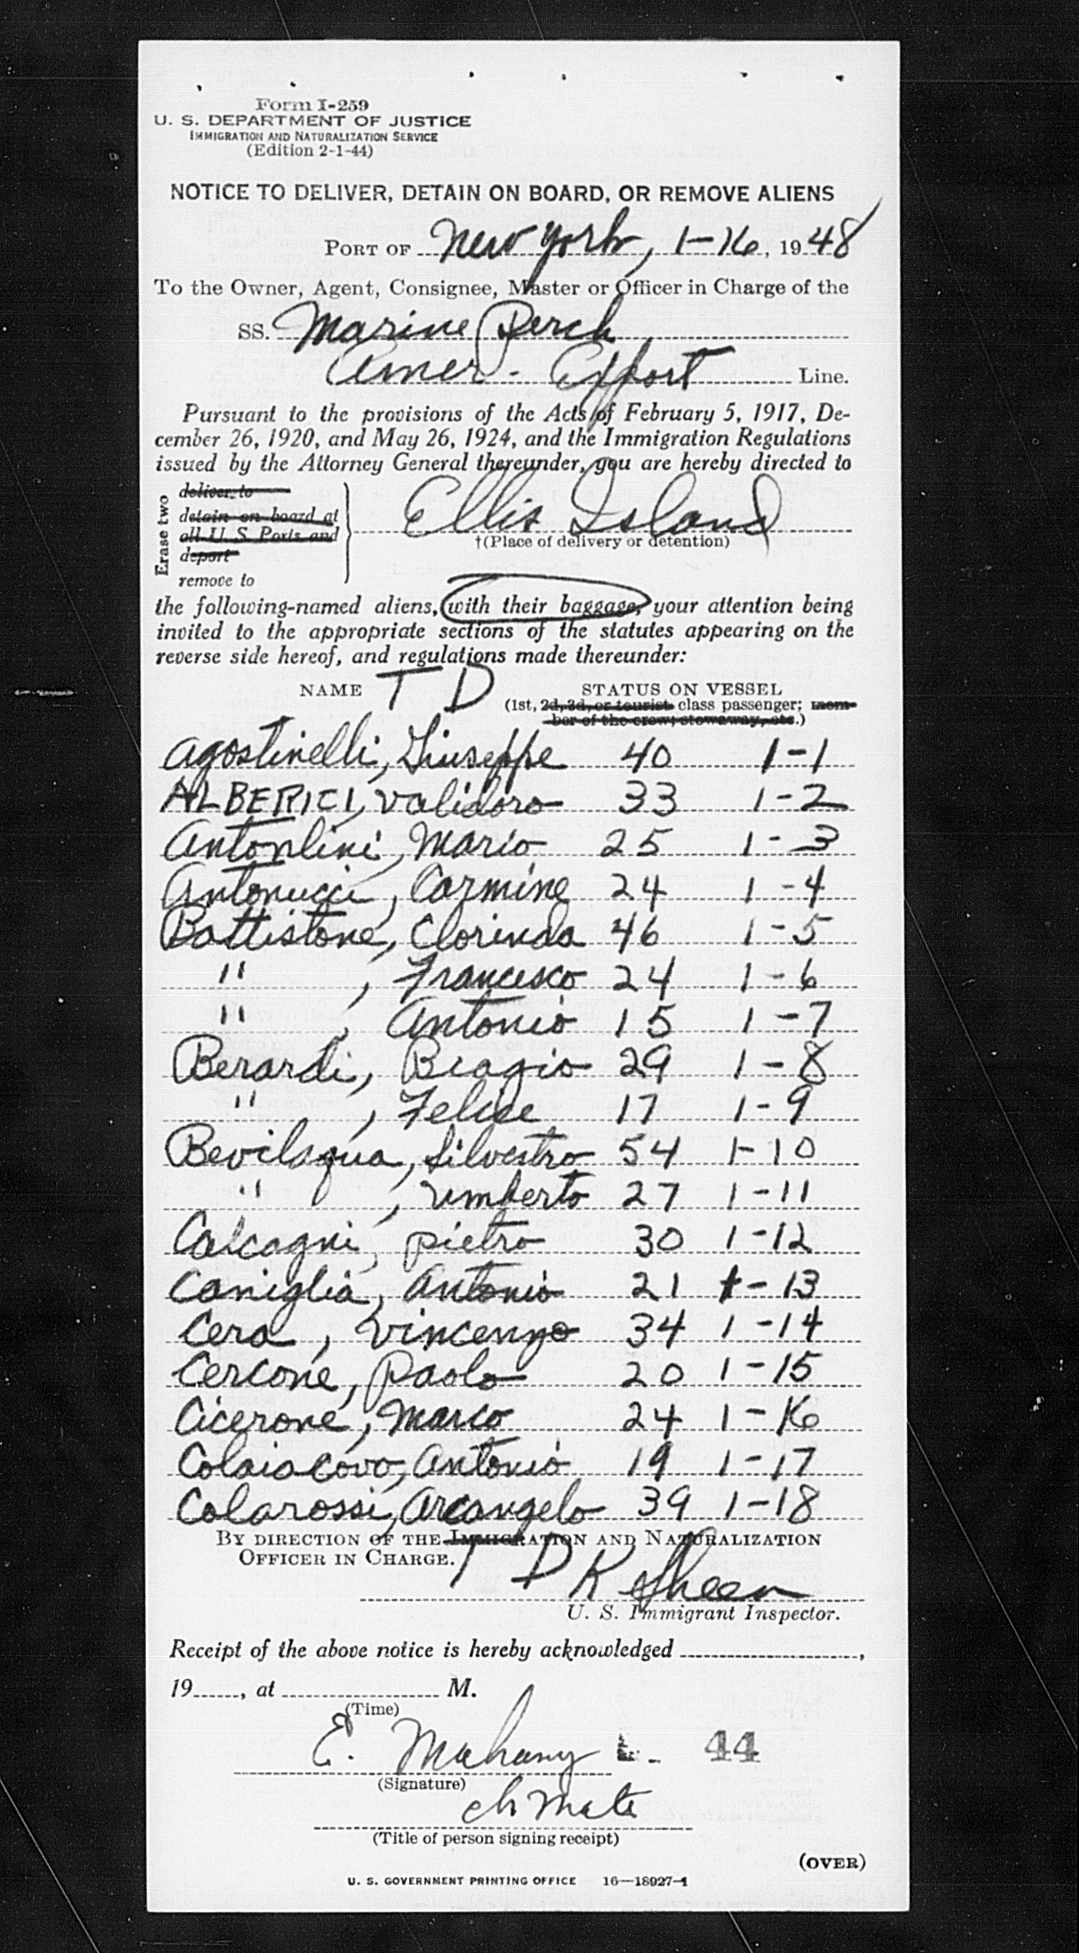 Form I-259
U. S. DEPARTMENT OF JUSTICE
IMMIGRATION AND NATURALIZATION SERVICE
(Edition 2-1-44)
NOTICE TO DELIVER, DETAIN ON BOARD, OR REMOVE ALIENS
PORT OF New York, 1-16, 1948
To the Owner, Agent, Consignee, Master or Officer in Charge of the
SS. Marine Perch
Amer. Export Line.
Pursuant to the provisions of the Acts of February 5, 1917, De-
cember 26, 1920, and May 26, 1924, and the Immigration Regulations
issued by the Attorney General thereunder, you are hereby directed to
Erase two
deliver to
detain on board at
all U. S. Ports and
deport
remove to
Ellis Island
†(Place of delivery or detention)
the following-named aliens, with their baggage, your attention being
invited to the appropriate sections of the statutes appearing on the
reverse side hereof, and regulations made thereunder:
NAME T D STATUS ON VESSEL
(1st, 2d, 3d, or tourist class passenger; mem-
ber of the crew; stowaway, etc.)
Agostinelli, Giuseppe 40 1-1
ALBERICI, Validoro 33 1-2
Antonlini, Mario 25 1-3
Antonucci, Carmine 24 1-4
Battistone, Clorinda 46 1-5
" , Francesco 24 1-6
" , Antonio 15 1-7
Berardi, Biagio 29 1-8
" , Felice 17 1-9
Bevilaqua, Silvestro 54 1-10
" , Umberto 27 1-11
Calcagni, Pietro 30 1-12
Caniglia, Antonio 21 1-13
Cera, Vincenzo 34 1-14
Cercone, Paolo 20 1-15
Cicerone, Marco 24 1-16
Colaiacovo, Antonio 19 1-17
Colarossi, Arcangelo 39 1-18
BY DIRECTION OF THE IMMIGRATION AND NATURALIZATION
OFFICER IN CHARGE. T D
K Sheen
U. S. Immigrant Inspector.
Receipt of the above notice is hereby acknowledged ,
19 , at M.
(Time)
E. Mahany 44
(Signature)
ch mate
(Title of person signing receipt)
(OVER)
U. S. GOVERNMENT PRINTING OFFICE 16—18027-1